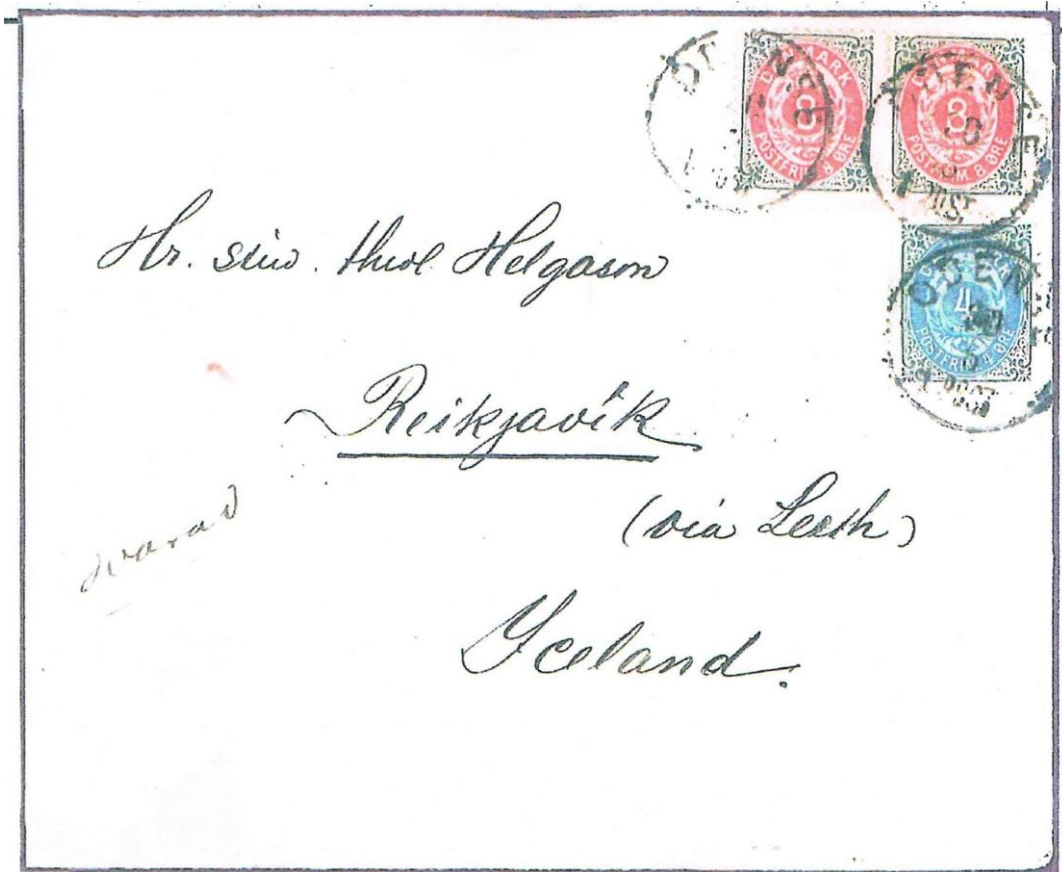 DANMARK
8
POSTFRIM. 8 ØRE
DANMARK
8
POSTFRIM. 8 ØRE
ODENSE
ODENSE
DANMARK
4
POSTFRIM. 4 ØRE
ODENSE
Hr. stud. theol Helgason
Reikjavík
(via Leith)
Iceland.